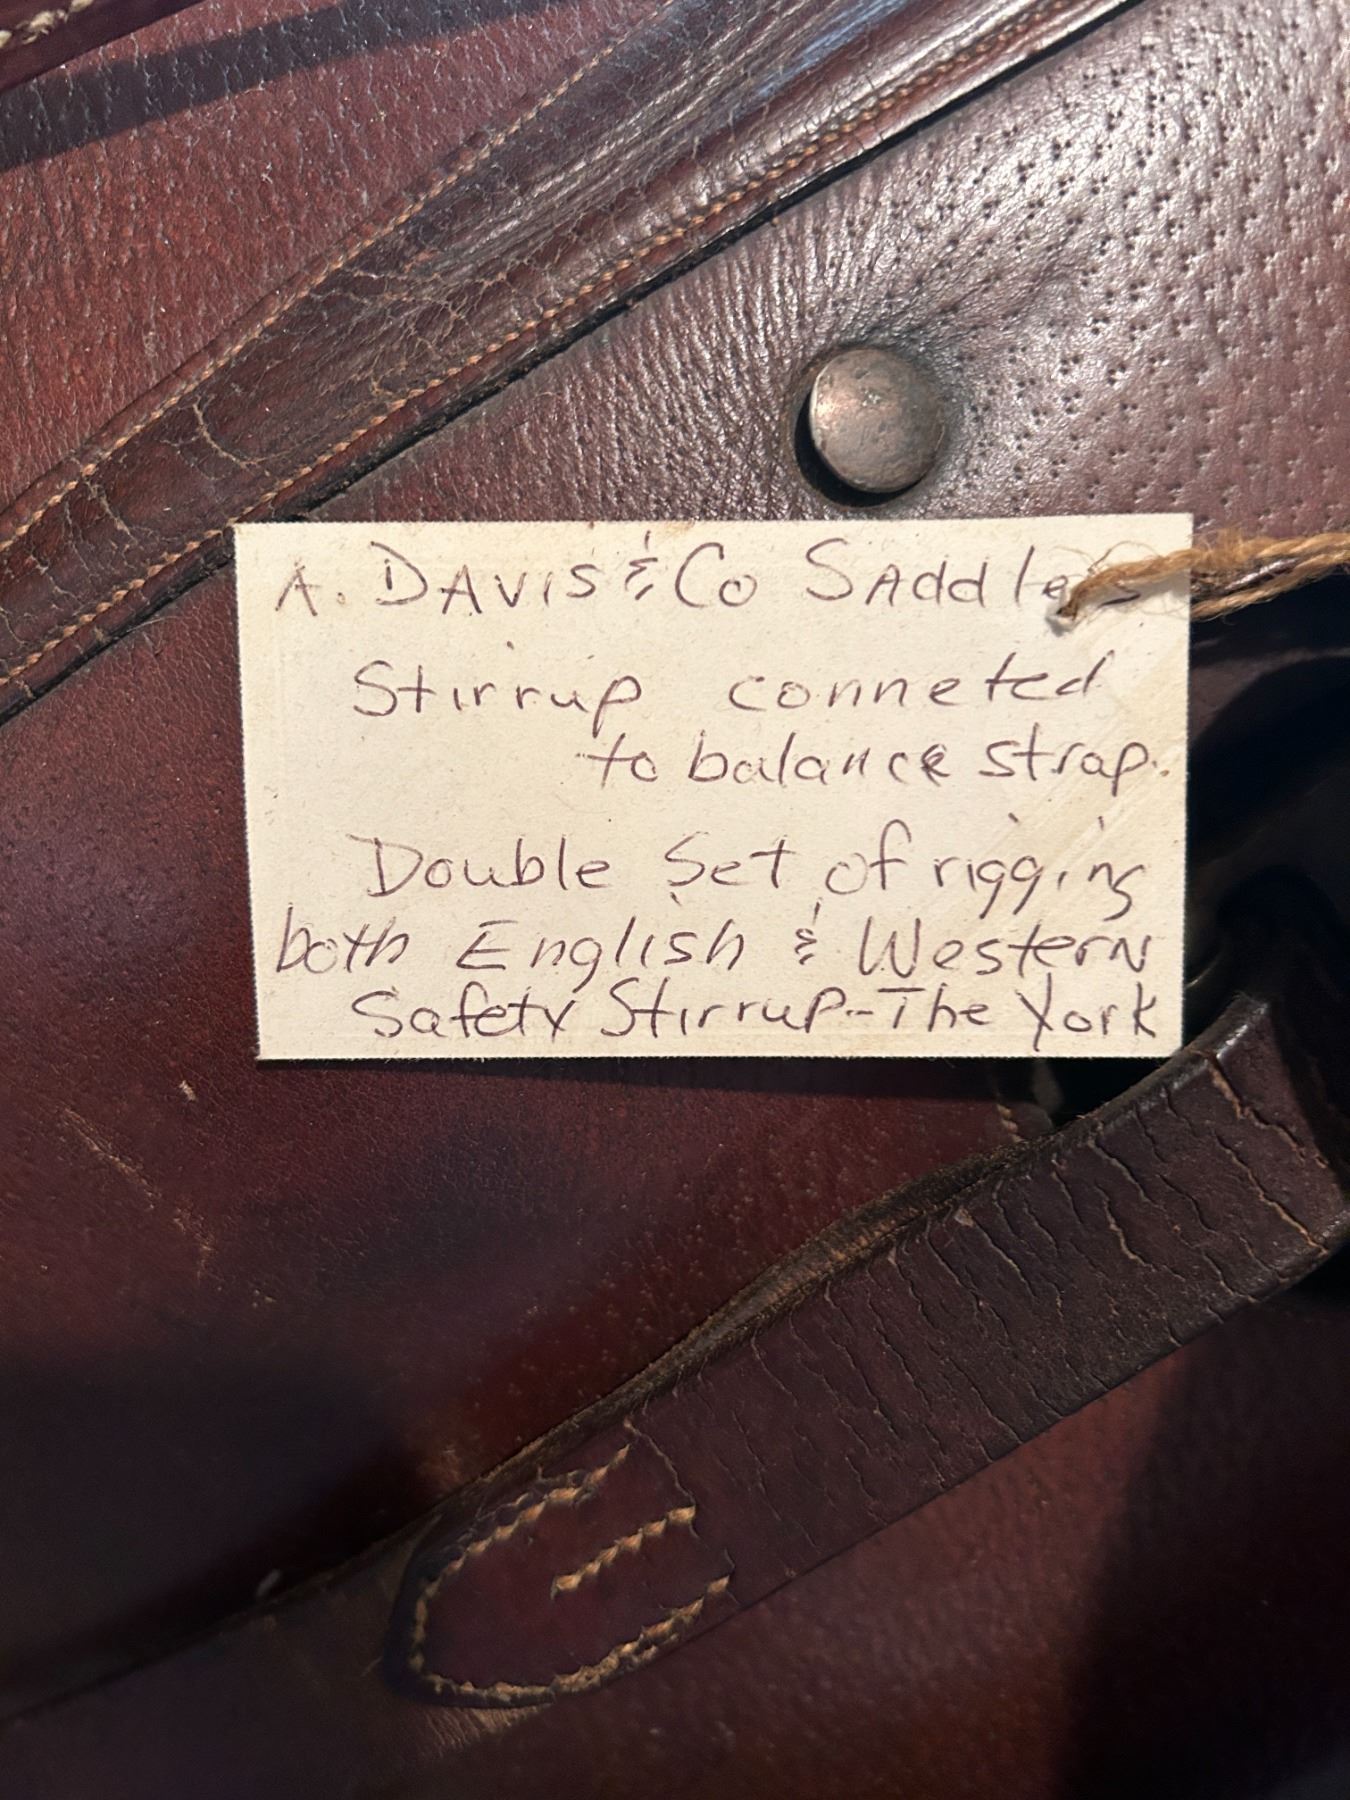 A. DAVIS & Co SAddlers
Stirrup conneted
to balance strap.
Double Set of rigging
both English & Western
Safety Stirrup--The York